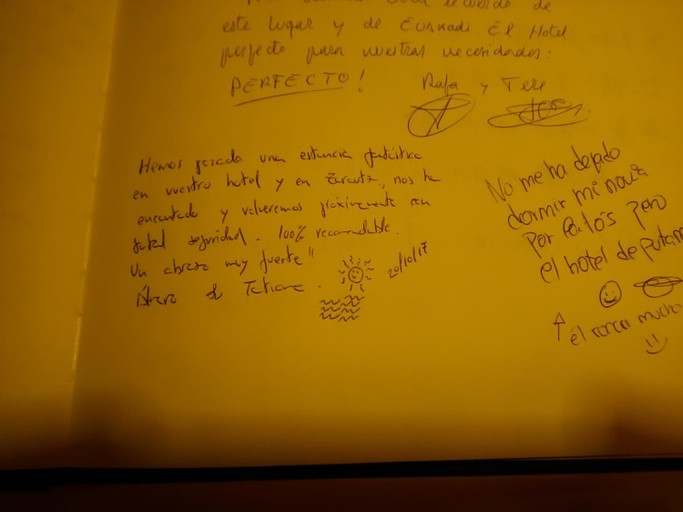 este lugar y de Euskadi. El Hotel
perfecto para nuestras necesidades:
PERFECTO!
Rafa y Tere
Hemos pasado una estancia fantástica
en vuestro hotel y en Zarautz, nos ha
encantado y volveremos próximamente con
total seguridad. 100% recomendable.
Un abrazo muy fuerte
Álvaro & Tatiana.
20/10/17
No me ha dejado
dormir mi novia
por pero
el hotel de putam
↑ él ronca mucho